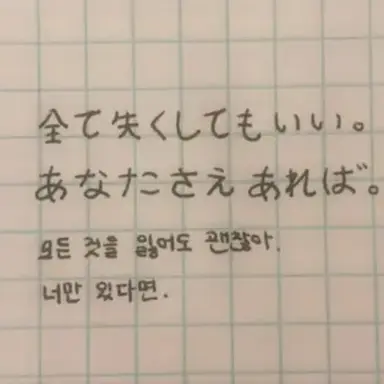 全て失くしてもいい。
あなたさえあれば。
모든 것을 잃어도 괜찮아.
너만 있다면.